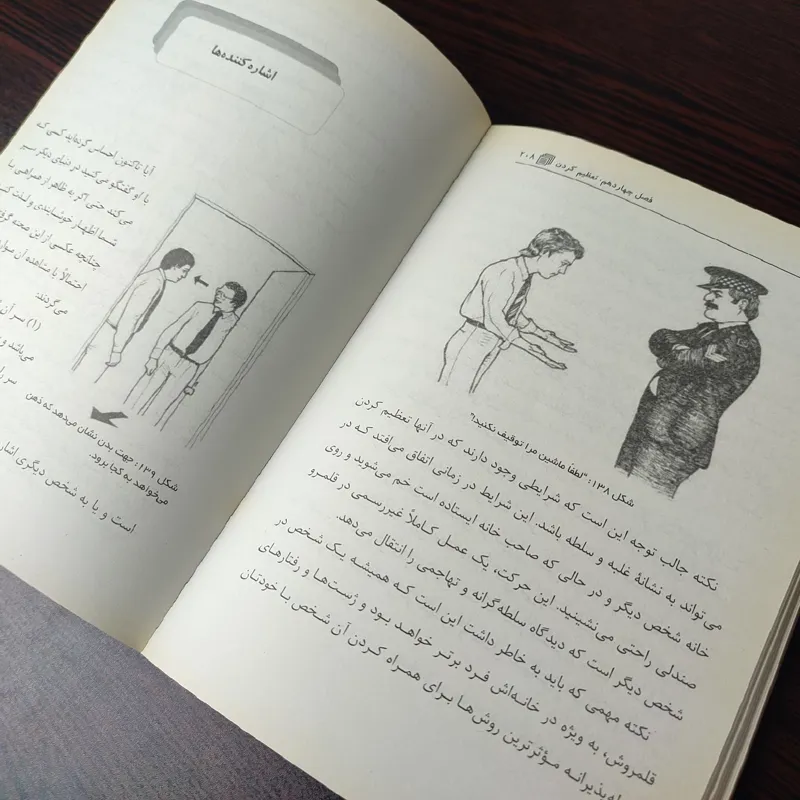 ۲۰۸ فصل چهاردهم: تعظیم کردن
شکل ۱۳۸: "لطفاً ماشین مرا توقیف نکنید!"
نکته جالب توجه این است که شرایطی وجود دارند که در آنها تعظیم کردن
می‌تواند به نشانهٔ غلبه و سلطه باشد. این شرایط در زمانی اتفاق می‌افتد که در
خانه شخص دیگر و در حالی که صاحب خانه ایستاده است خم می‌شوید و روی
صندلی راحتی می‌نشینید. این حرکت، یک عمل کاملاً غیررسمی در قلمرو
شخص دیگر است که دیدگاه سلطه‌گرانه و تهاجمی را انتقال می‌دهد.
نکته مهمی که باید به خاطر داشت این است که همیشه یک شخص در
قلمروش، به ویژه در خانه‌اش فرد برتر خواهد بود و ژست‌ها و رفتارهای
مؤثرترین روش‌ها برای همراه کردن آن شخص با خودتان
اشاره کننده‌ها
آیا تاکنون احساس کرده‌اید کسی که
با او گفتگو می‌کنید در دنیای دیگر سیر
می‌کند حتی اگر به ظاهر از همراهی با
شما اظهار خوشایندی و لذت کند
چنانچه عکسی از این صحنه
احتمالاً با مشاهده آن
می‌گردند:
(۱) سر آن
می‌باشد و
سر را
شکل ۱۳۹: جهت بدن نشان می‌دهد که ذهن
می‌خواهد به کجا برود.
است و یا به شخص دیگری